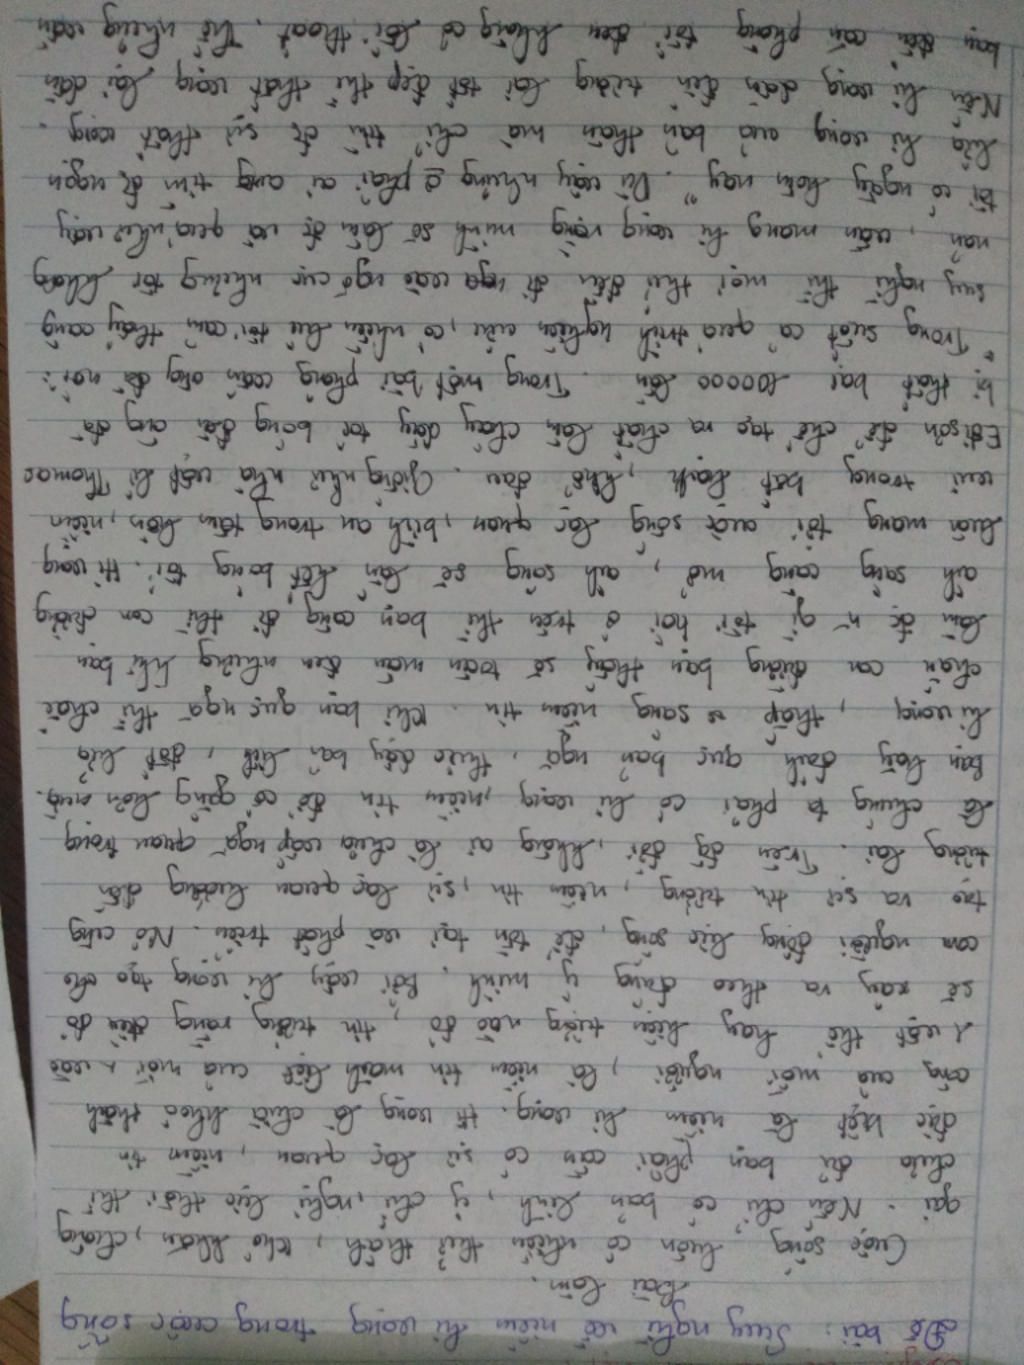 Đề bài: Suy nghĩ về niềm hi vọng trong cuộc sống
Bài làm.
Cuộc sống luôn có nhiều thử thách, khó khăn, chông
gai. Nếu chỉ có bản lĩnh, ý chí, nghị lực thôi thì
chưa đủ bạn phải cần có sự lạc quan, niềm tin
đặc biệt là niềm hi vọng. Hi vọng là chìa khóa thành
công của mỗi người, là niềm tin mãnh liệt của mỗi
1 vật thể hay hiện tượng nào đó, tin tưởng rằng điều đó
sẽ xảy ra theo đúng ý mình. Bởi vậy hi vọng tạo cho
con người động lực sống, để tồn tại và phát triển. Nó cũng
tạo ra sự tin tưởng, niềm tin, sự lạc quan hướng đến
tương lai. Trên đời, không ai là chưa vấp ngã quan trọng
là chúng ta phải có hi vọng, niềm tin để cố gắng hơn nữa.
Bạn hãy đánh gục bản ngã, thúc đẩy bản lĩnh, đốt lửa
hi vọng, thắp sáng niềm tin. Khi bạn gục ngã thì chắc
chắn con đường bạn thấy sẽ toàn màn đen nhưng khi bạn
làm đc gì tôi nói ở trên thì bạn cũng đi thì con đường
ánh sáng càng mở, ánh sáng sẽ lấn hết bóng tối. Hi vọng
luôn mang tới cuộc sống lạc quan, bình an trong tâm hồn, niềm
vui trong bất hạnh, khổ đau. Giống như nhà vật lí Thomas
Edison để chế tạo ra chất làm cháy dây tóc bóng đèn ông đã
bị thất bại 100000 lần. Trong một bài phỏng vấn ông đã nói:
"Trong suốt cả quá trình nghiên cứu, có nhiều lúc tôi cảm thấy căng
suy nghĩ thì mọi thứ dần đi ngo vào ngõ cụt nhưng tôi không
nản, vẫn mang hi vọng rằng mình sẽ làm đc và quả như vậy
tôi có ngày hôm nay". Dù vậy nhưng phải ai cũng tìm đc ngọn
lửa hi vọng của bản thân mà chỉ thì đc sự thất vọng.
Nếu hi vọng dẫn đến tương lai tốt đẹp thì thất vọng lại dẫn
bạn đến căn phòng tối đen không có lối thoát. Thế nhưng vẫn